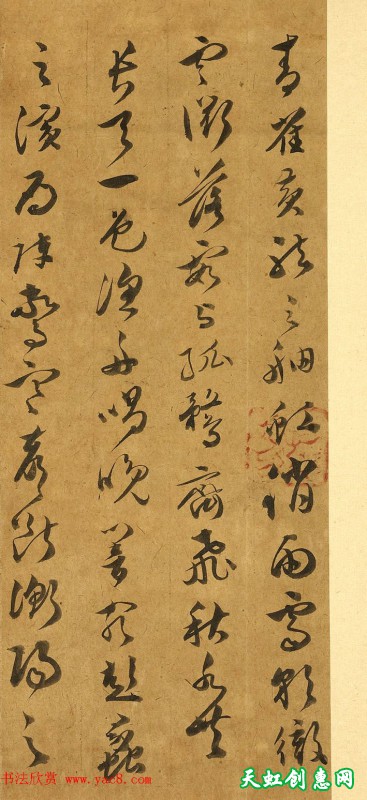 青雀黃龍之舳虹銷雨霽彩徹
雲衢落霞与孤鶩齊飛秋水共
長天一色漁舟唱晚響窮彭蠡
之濱雁陣驚寒聲斷衡陽之
书法欣赏 www.yac8.com
天虹创惠网